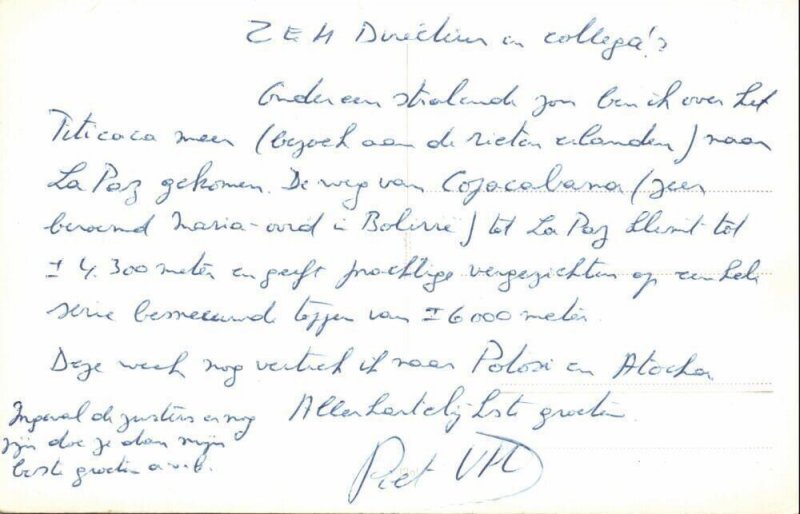 ZEH Directeur en collega's
Onder een stralende zon ben ik over het
Titicaca meer (bezoek aan de rieten eilanden) naar
La Paz gekomen. De weg van Copacabana (zeer
beroemd Maria-oord in Bolivië) tot La Paz klimt tot
± 4.300 meter en geeft prachtige vergezichten op een hele
serie besneeuwde toppen van ± 6000 meter.
Deze week nog vertrek ik naar Potosi en Atocha.
Allerhartelijkste groeten.
Ingeval de zusters er nog
zijn doe ze dan mijn
beste groeten a.u.b.
Piet VH